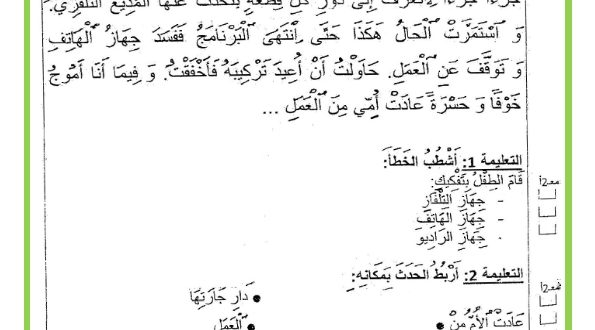 جُزْءًا جُزْءًا لِأَتَعَرَّفَ إِلَى دَوْرِ كُلِّ قِطْعَةٍ يَتَحَدَّثُ عَنْهَا الْمُذِيعُ التِّلْفَزِيُّ.
وَ ٱسْتَمَرَّتْ ٱلْحَالُ هَكَذَا حَتَّى ٱِنْتَهَى ٱلْبَرْنَامَجُ فَفَسَدَ جِهَازُ ٱلْهَاتِفِ
وَ تَوَقَّفَ عَنِ ٱلْعَمَلِ. حَاوَلْتُ أَنْ أُعِيدَ تَرْكِيبَهُ فَأَخْفَقْتُ. وَ فِيمَا أَنَا أَمُوجُ
خَوْفًا وَ حَسْرَةً عَادَتْ أُمِّي مِنَ ٱلْعَمَلِ ...
التعليمة 1: أَشْطُبُ الخَطَأَ:
قَامَ الطِّفْلُ بِتَفْكِيكِ:
مع2أ
- جِهَازِ التِّلْفَازِ
- جِهَازِ الهَاتِفِ
- جِهَازِ الرَّادِيُو
التعليمة 2: أَرْبُطُ الحَدَثَ بِمَكَانِهِ:
مع2أ
• دَارِ جَارَتِهَا
عَادَتْ الأُمُّ مِنْ •
• ٱلْعَمَلِ